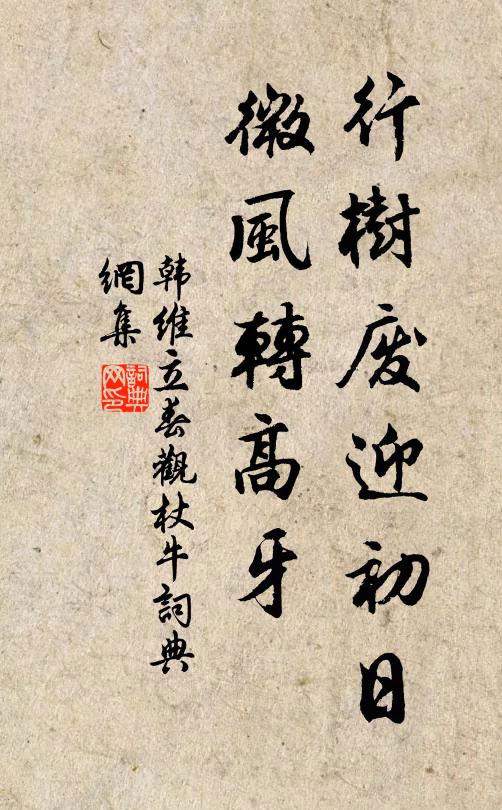 行樹废迎初日
微風轉高牙
韩維立春觀杖牛詞典
網集
詞典
网印